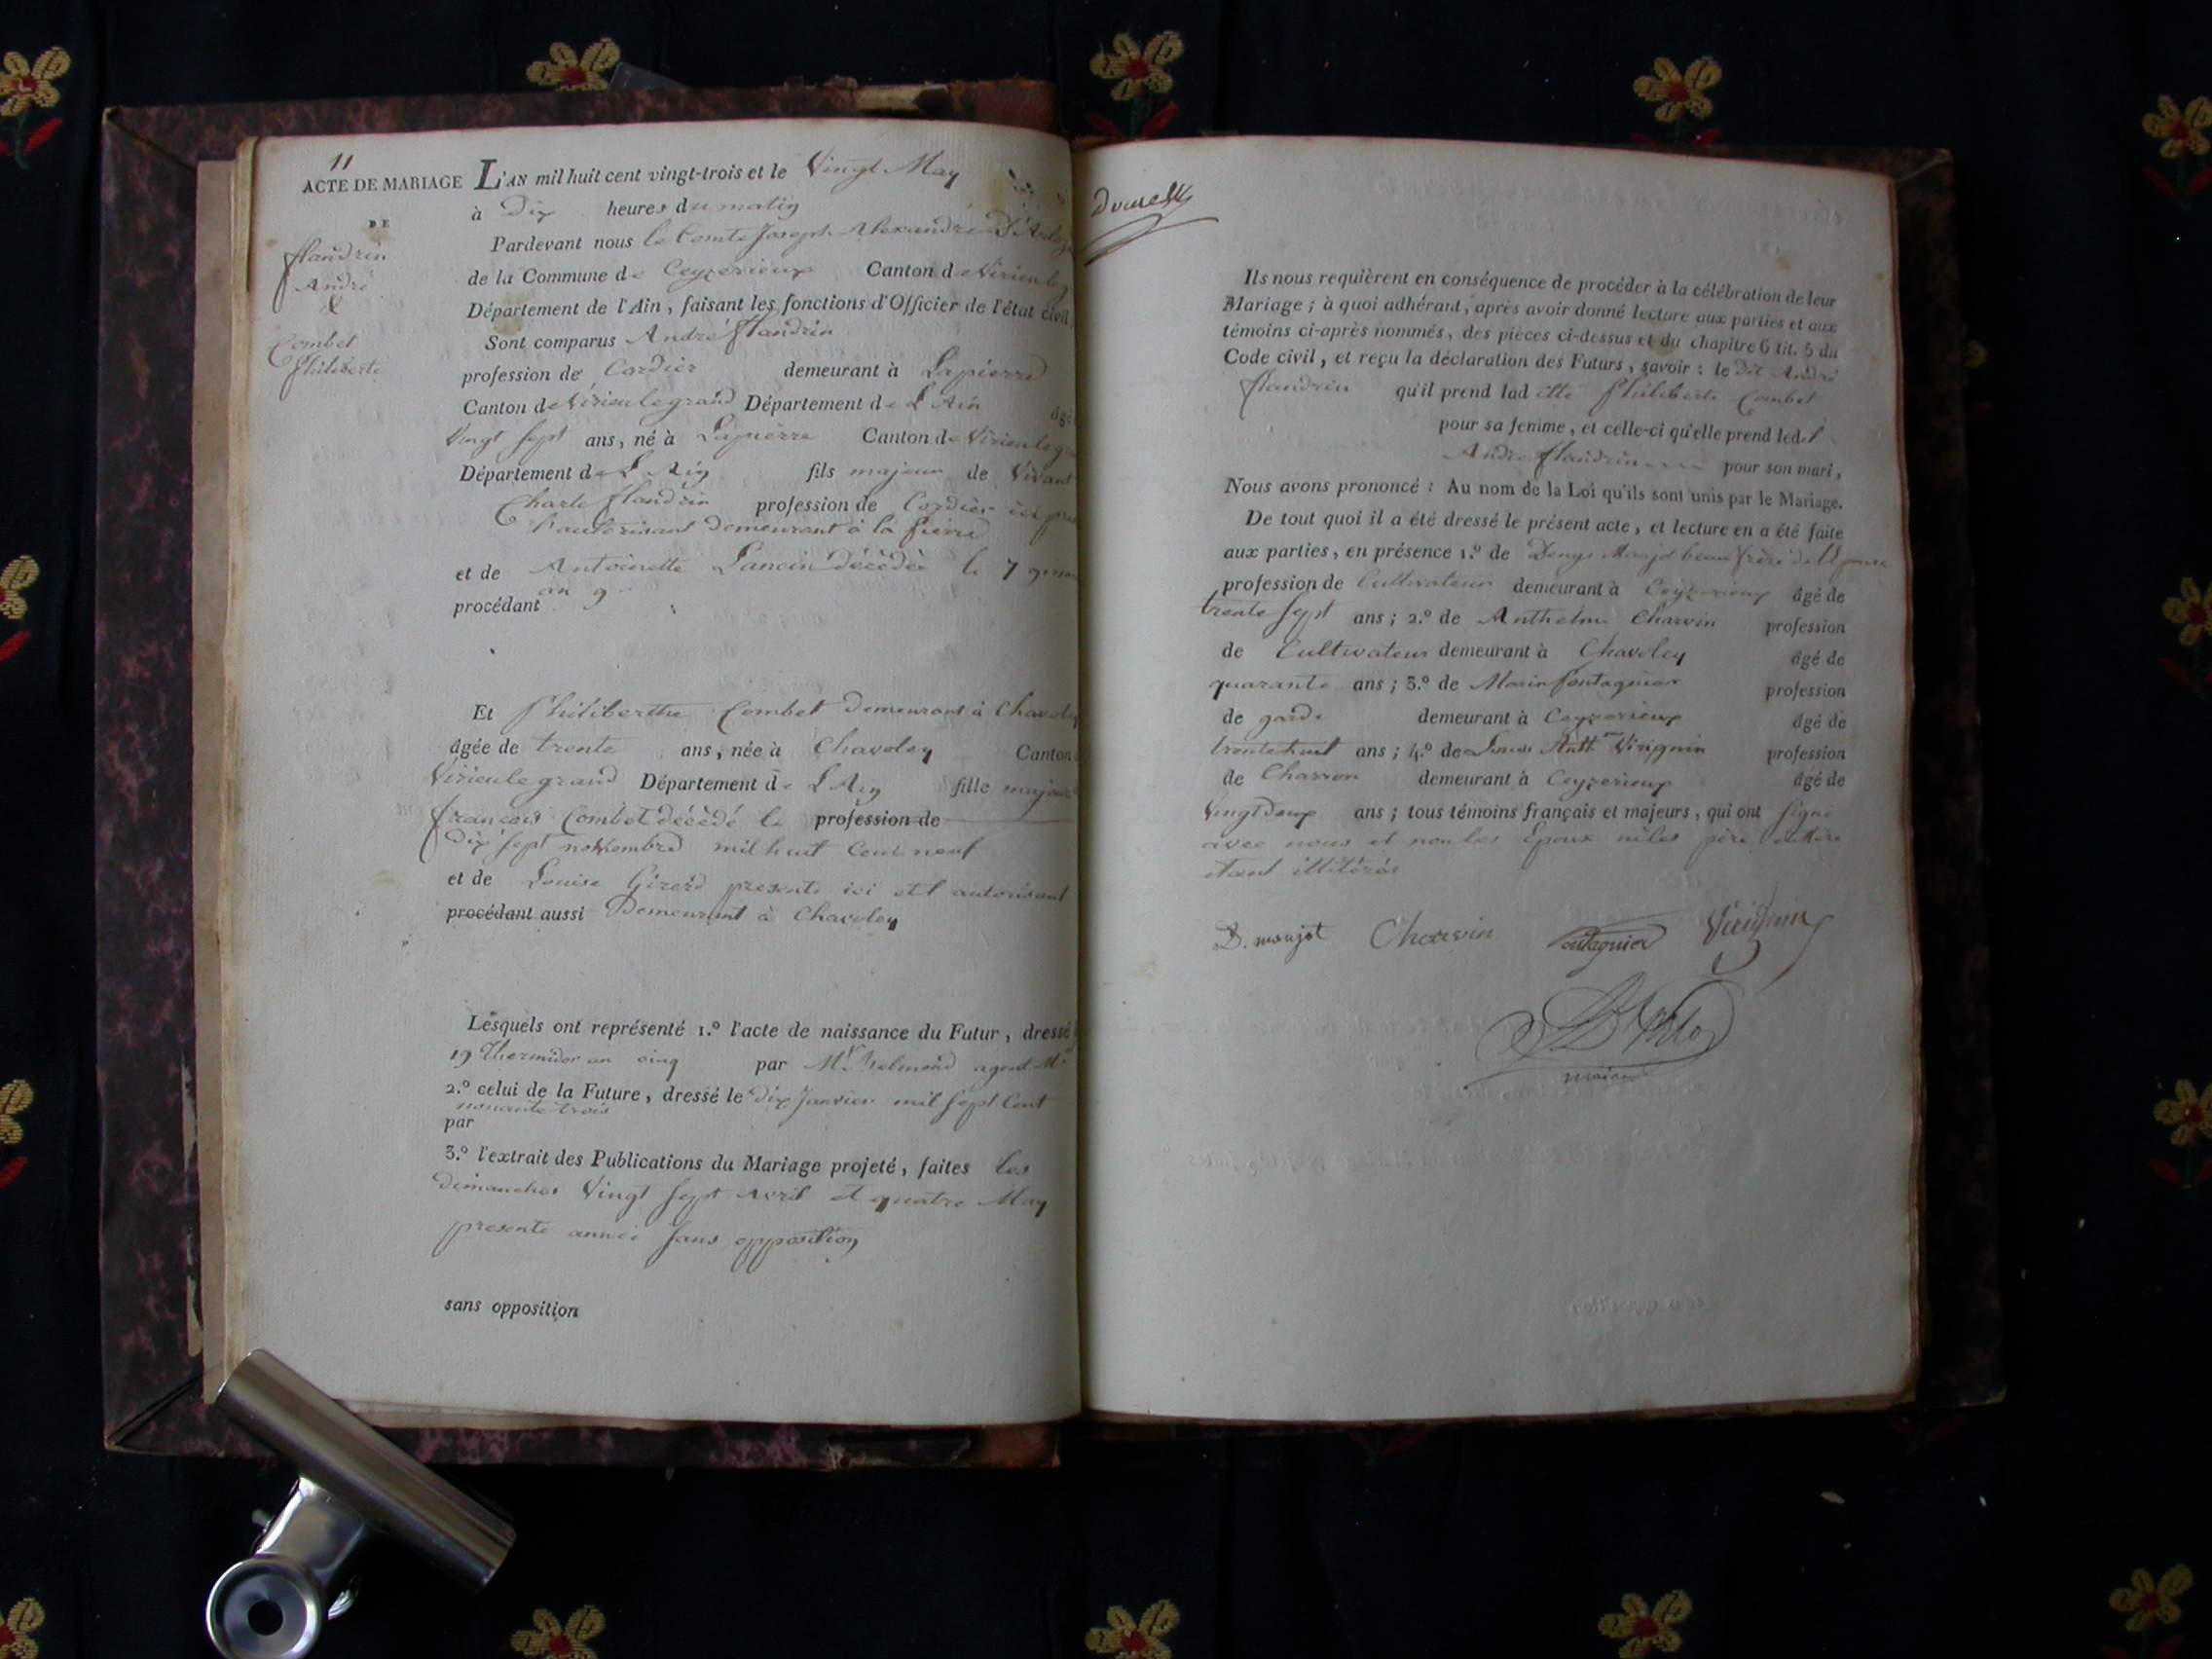 11
ACTE DE MARIAGE
DE
flandrin
André
&
Combet
Philiberte
L'AN mil huit cent vingt-trois et le Vingt May
à Dix heures du matin
Pardevant nous le Comte Joseph Alexandre
de la Commune de Ceyzerieux Canton de Virieu le
Département de l'Ain, faisant les fonctions d'Officier de l'état civil,
Sont comparus André flandrin
profession de Cordier demeurant à Lapierre
Canton de Virieu le grand Département de L'Ain âgé
Vingt Sept ans, né à Lapierre Canton de Virieu le
Département de L'Ain fils majeur de Vivant
Charle flandrin profession de Cordier ici
L'autorisant demeurant à la pierre
et de Antoinette Lancin décédée le 7
an 9
procédant
Et Philiberthe Combet demeurant à Chavoley
âgée de trente ans, née à Chavoley Canton
Virieu le grand Département de L'Ain fille majeure
françois Combet décédé le profession de
dix Sept novembre mil huit Cent neuf
et de Louise Girerd presente ici et l'autorisant
procédant aussi Demeurant à Chavoley
Lesquels ont représenté 1.º l'acte de naissance du Futur, dressé
19 Thermidor an cinq par Mr agent
2.º celui de la Future, dressé le dix Janvier mil Sept Cent
nonante trois
par
3.º l'extrait des Publications du Mariage projeté, faites les
dimanches Vingt Sept Avril et quatre May
presente année Sans opposition
sans opposition
Ils nous requièrent en conséquence de procéder à la célébration de leur
Mariage; à quoi adhérant, après avoir donné lecture aux parties et aux
témoins ci-après nommés, des pièces ci-dessus et du chapitre 6 tit. 5 du
Code civil, et reçu la déclaration des Futurs, savoir: le dit André
flandrin qu'il prend lad itte Philiberte Combet
pour sa femme, et celle-ci qu'elle prend led.t
André flandrin pour son mari,
Nous avons prononcé: Au nom de la Loi qu'ils sont unis par le Mariage.
De tout quoi il a été dressé le présent acte, et lecture en a été faite
aux parties, en présence 1.º de Denys Maujot beau frère de L'Epouse
profession de Cultivateur demeurant à Ceyzerieux âgé de
trente Sept ans; 2.º de Anthelme Charvin profession
de Cultivateur demeurant à Chavoley âgé de
quarante ans; 3.º de Marin fontagnier profession
de garde demeurant à Ceyzerieux âgé de
trente huit ans; 4.º de Louis Anth.me Virignin profession
de Charron demeurant à Ceyzerieux âgé de
Vingt Deux ans; tous témoins français et majeurs, qui ont Signé
avec nous et non les Epoux ni les père et Mère
etant illitérés
D. maujot Charvin fontagnier Virignin
maire